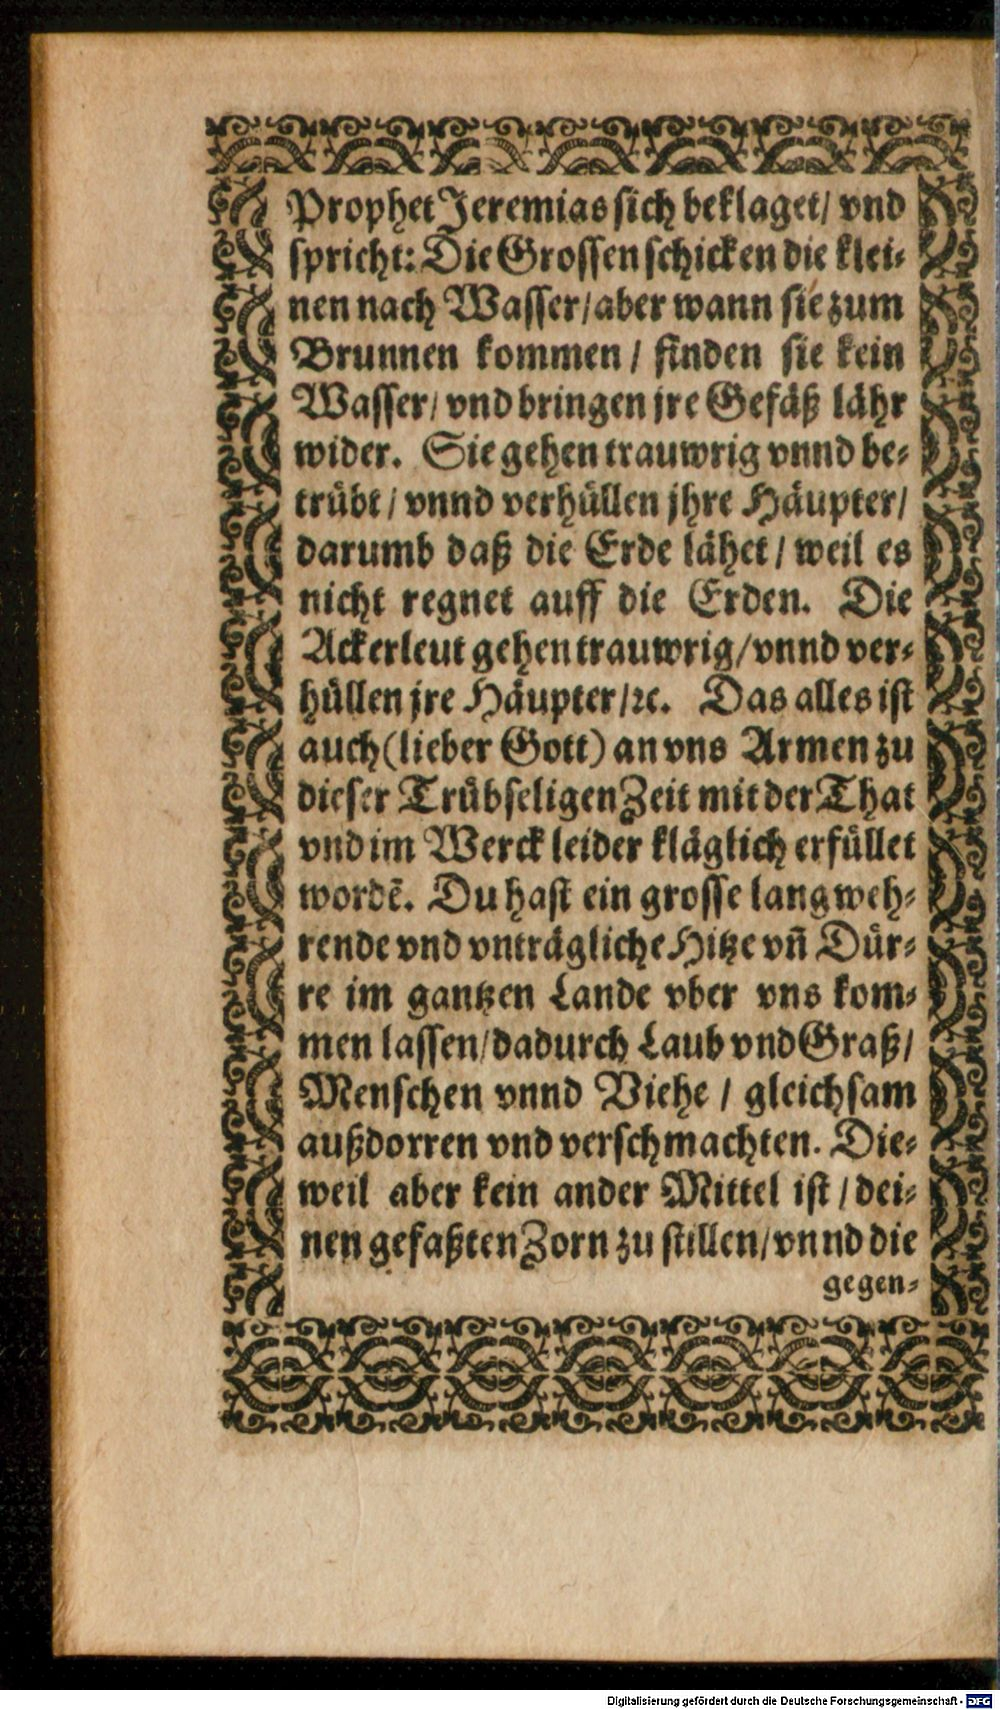 Prophet Jeremias sich beklaget/ vnd
spricht: Die Grossen schicken die klei-
nen nach Wasser/ aber wann sie zum
Brunnen kommen / finden sie kein
Wasser/ vnd bringen jre Gefäß lähr
wider. Sie gehen trauwrig vnnd be-
trübt / vnnd verhüllen jhre Häupter/
darumb daß die Erde lähet / weil es
nicht regnet auff die Erden. Die
Ackerleut gehen trauwrig/ vnnd ver-
hüllen jre Häupter/ꝛc. Das alles ist
auch (lieber Gott) an vns Armen zu
dieser Trübseligen Zeit mit der That
vnd im Werck leider kläglich erfüllet
wordẽ. Du hast ein grosse langweh-
rende vnd vnträgliche Hitze vñ Dür-
re im gantzen Lande vber vns kom-
men lassen/ dadurch Laub vnd Graß/
Menschen vnnd Viehe / gleichsam
außdorren vnd verschmachten. Die-
weil aber kein ander Mittel ist / dei-
nen gefaßten Zorn zu stillen/ vnnd die
gegen-
Digitalisierung gefördert durch die Deutsche Forschungsgemeinschaft - DFG